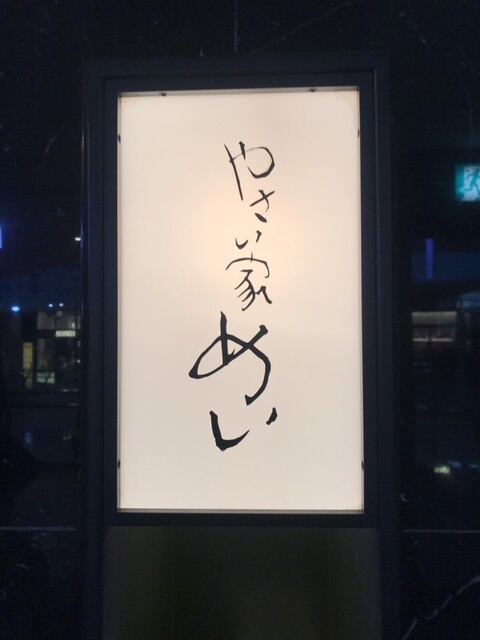 やさい家めい